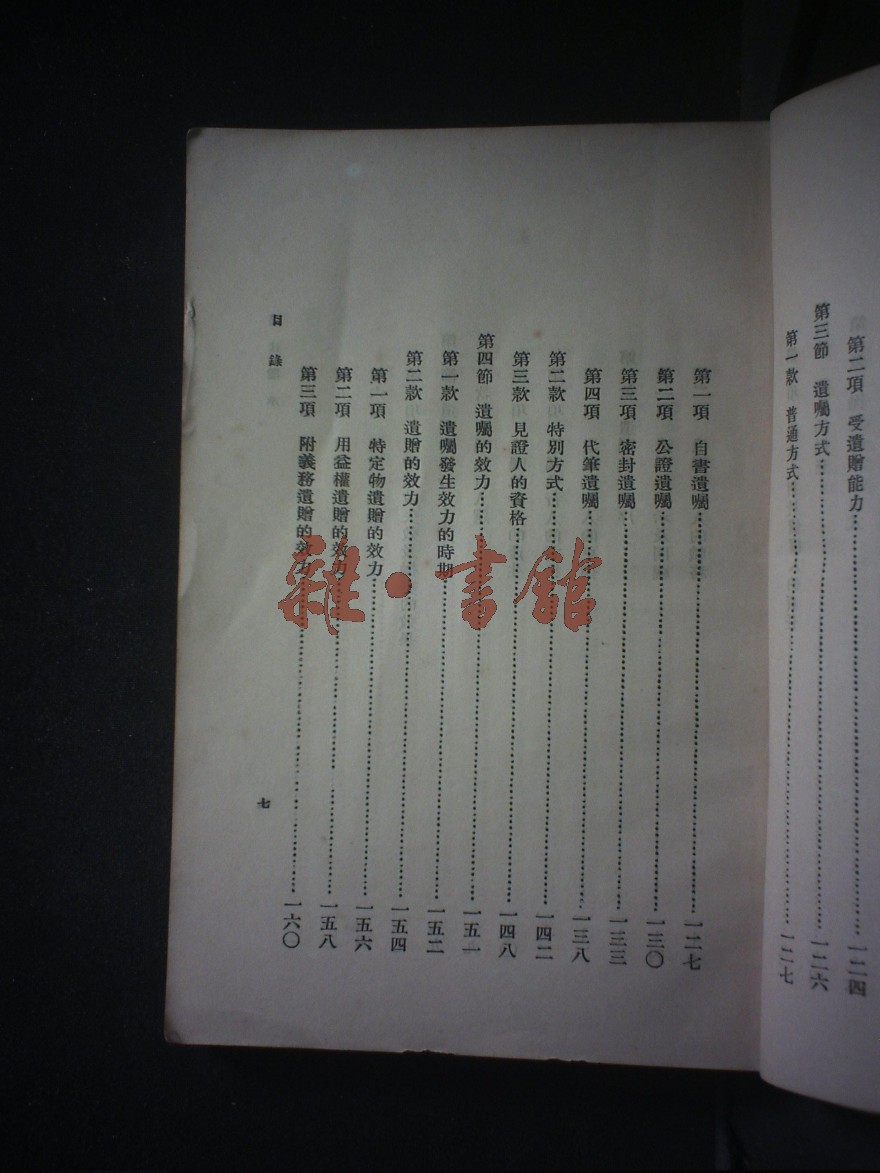 第二項 受遺贈能力……一二四
第三節 遺囑方式……一二六
第一款 普通方式……一二七
第一項 自書遺囑……一二七
第二項 公證遺囑……一三〇
第三項 密封遺囑……一三三
第四項 代筆遺囑……一三八
第二款 特別方式……一四二
第三款 見證人的資格……一四八
第四節 遺囑的效力……一五一
第一款 遺囑發生效力的時期……一五二
第二款 遺贈的效力……一五四
第一項 特定物遺贈的效力……一五六
第二項 用益權遺贈的效力……一五八
第三項 附義務遺贈的效力……一六〇
目錄
七
雜·書館